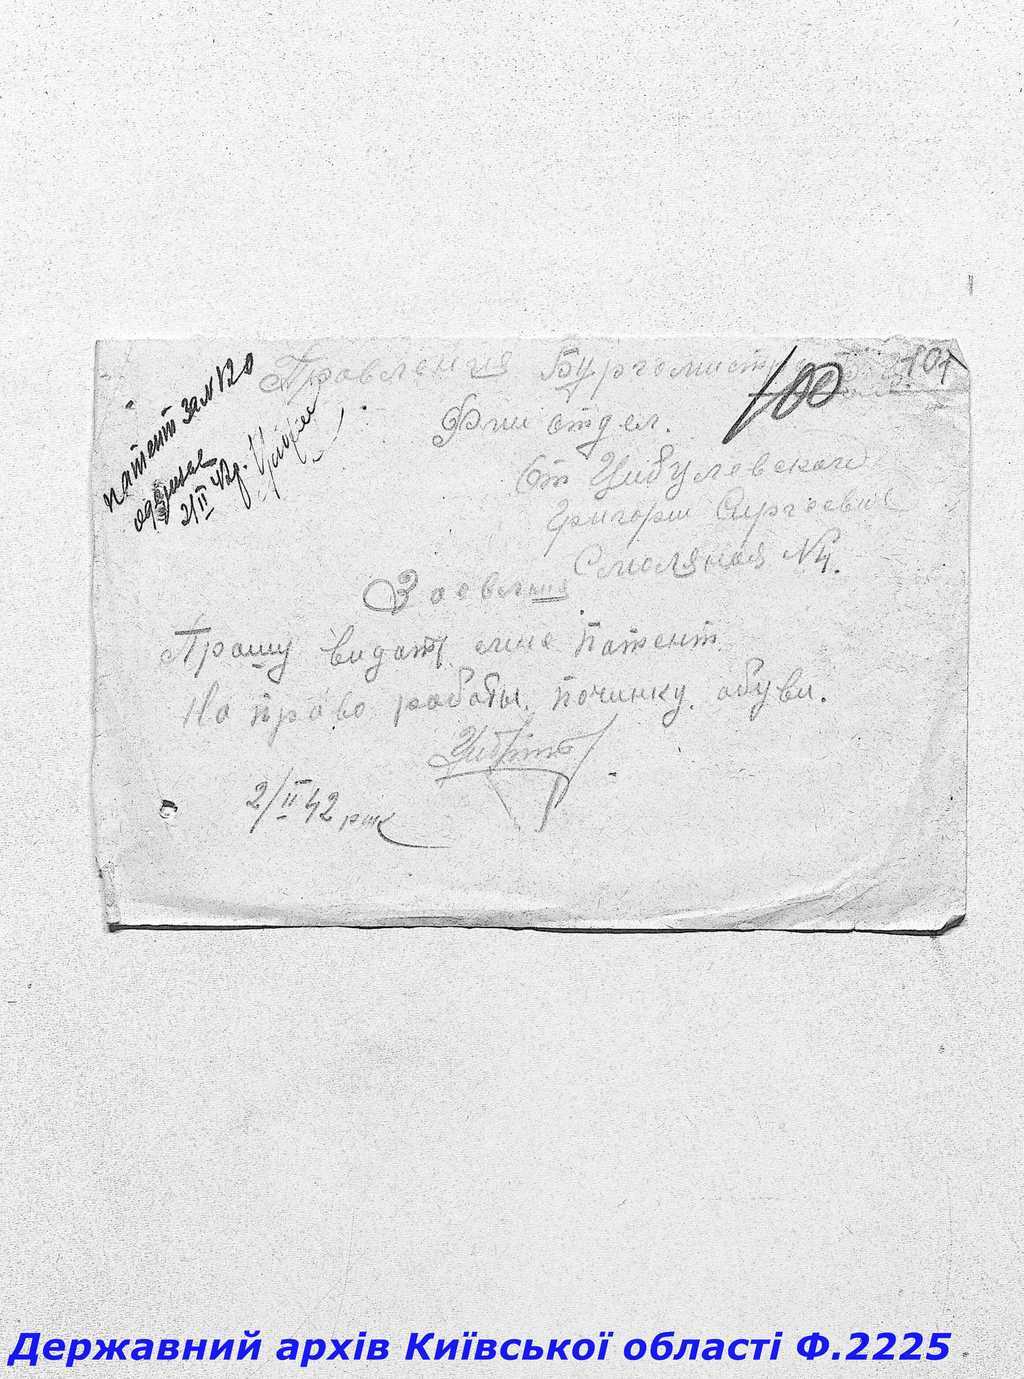 Провления Бургомистра
100
107
Фин отдел.
От Цибулевского
Григория Сиргеевич
Смоляная №4.
патент за №120
одержав
2/II 42р.
Зоевления
Прошу видоть мне патент
На право работы. починку. обуви.
2/II 42 рик
Державний архів Київської області Ф.2225